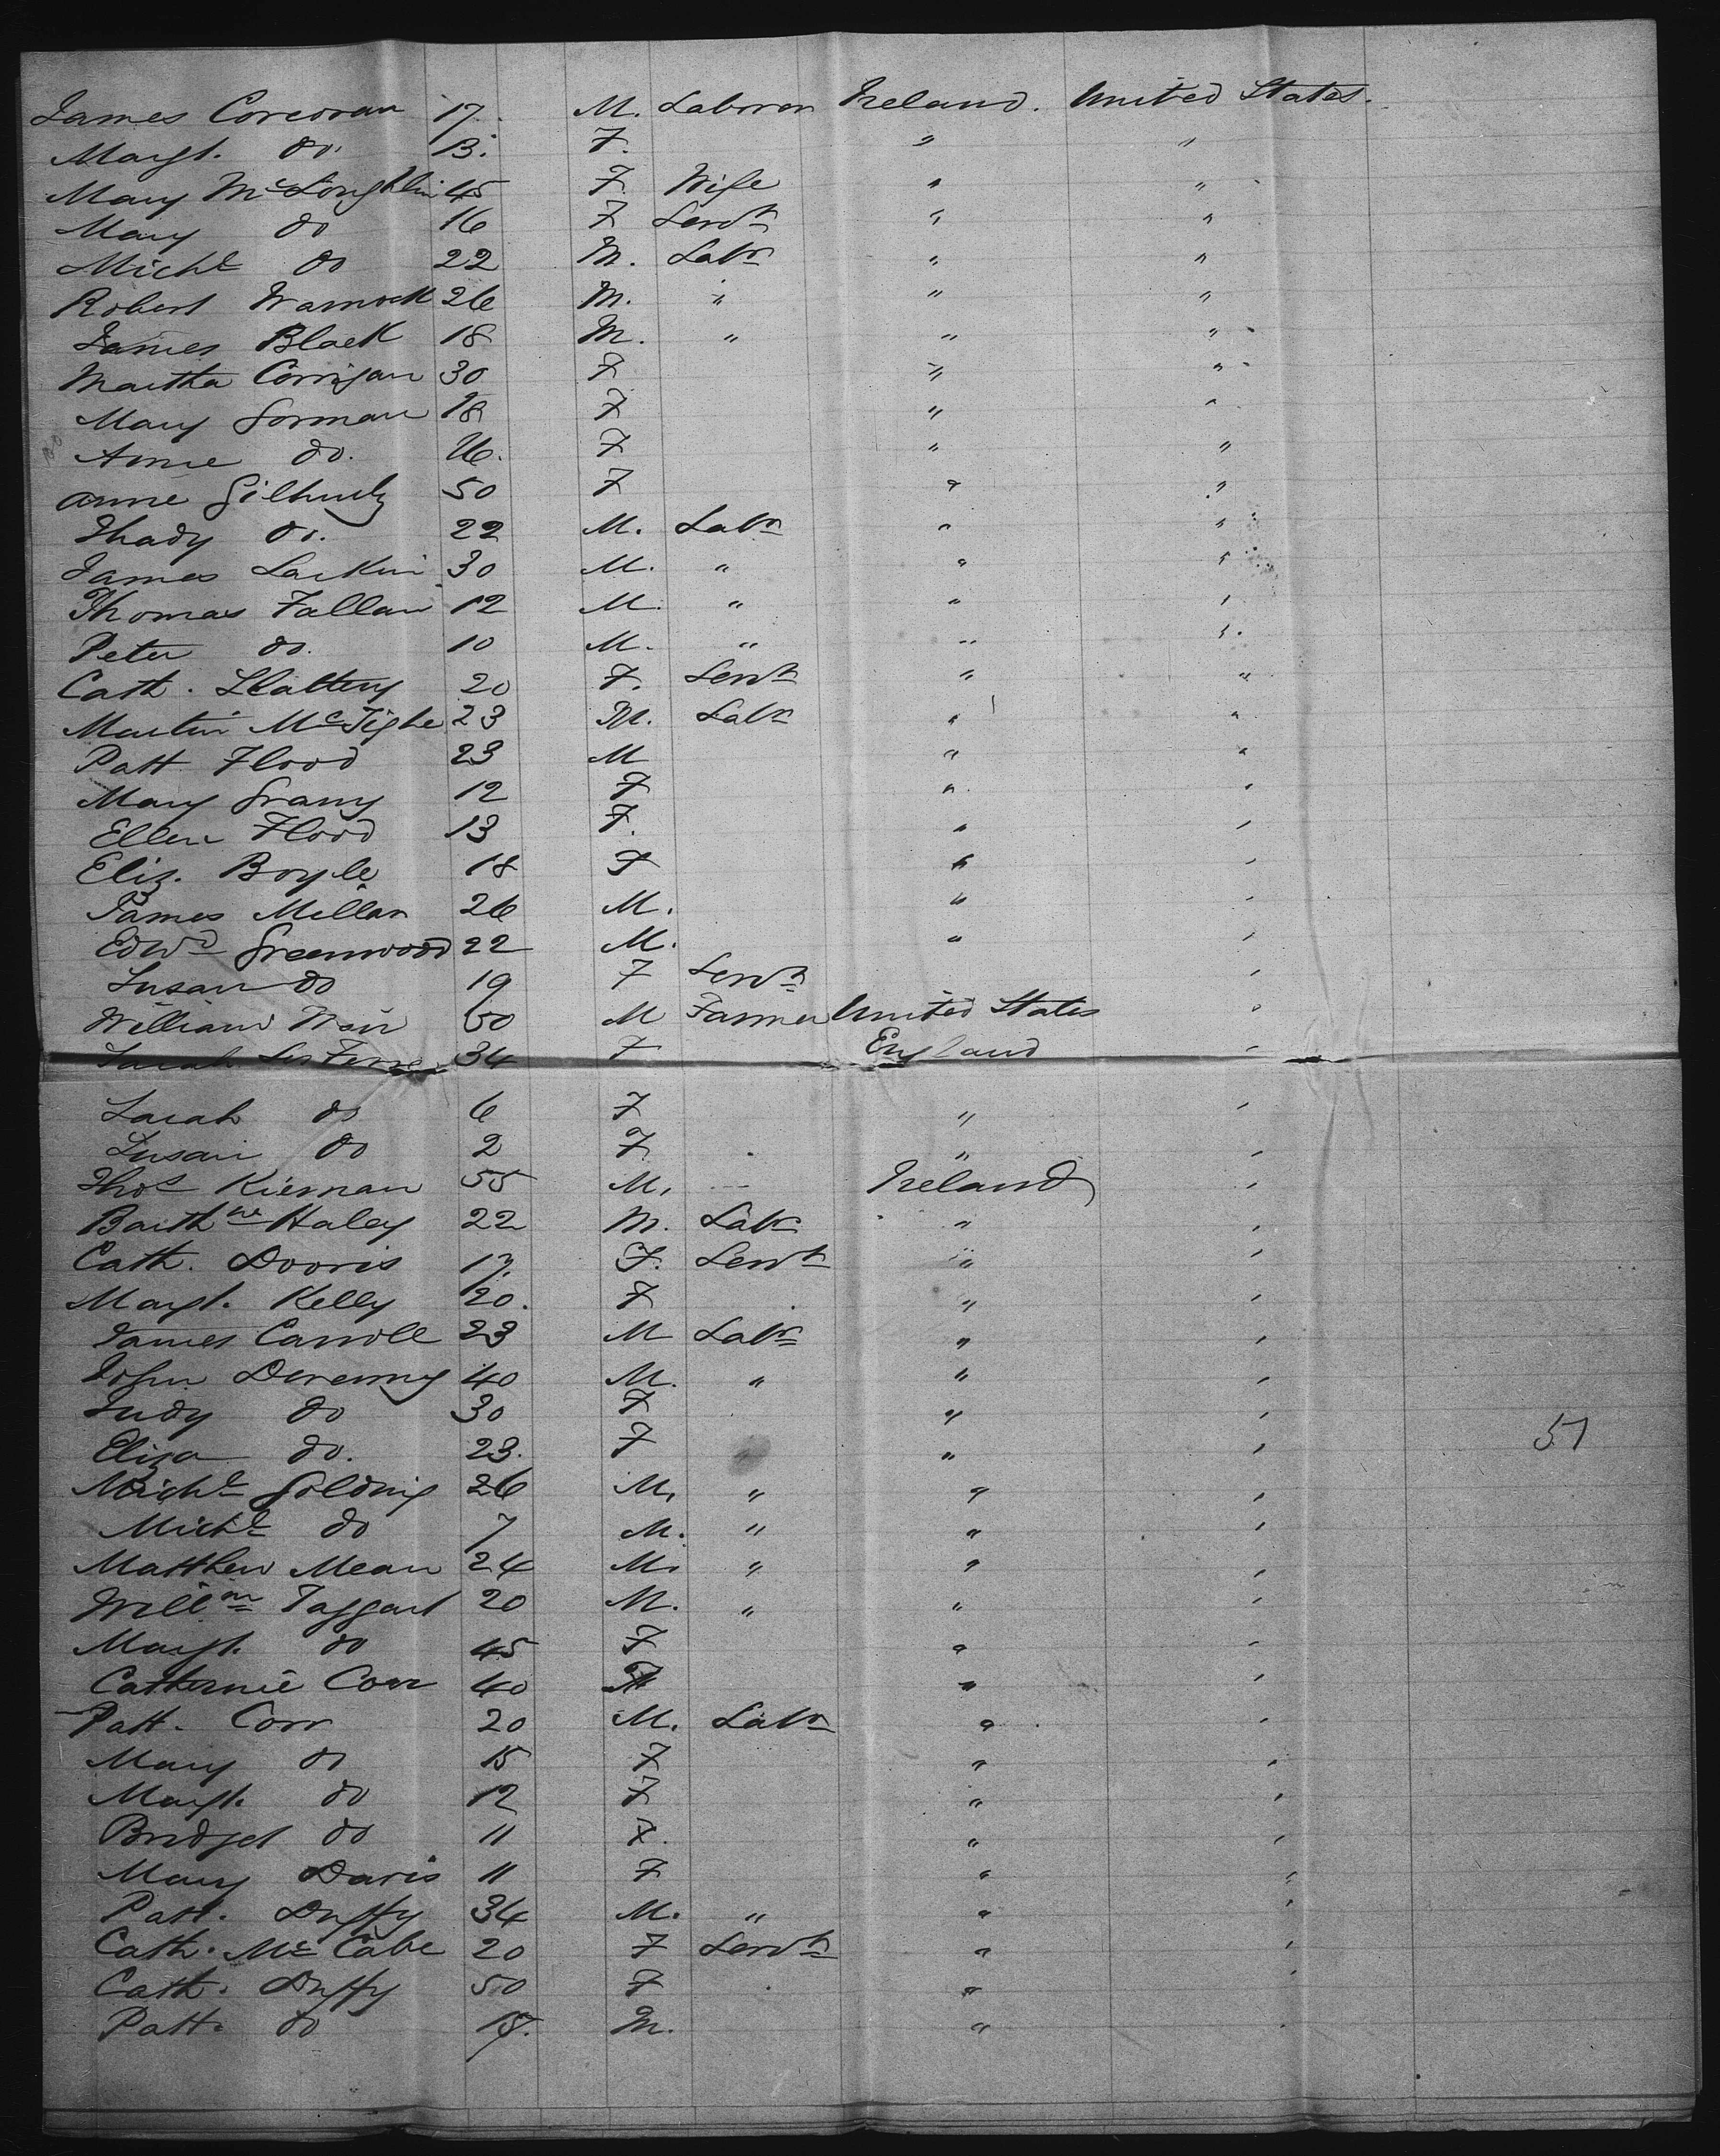 James Corcoran 17. M. Laborer Ireland. United States.
Margt. do. 13. F. " "
Mary McLoughlin 45 F. Wife " "
Mary do 16 F Servt " "
Michl do 22 M. Labr " "
Robert Warnock 26 M. " " "
James Black 18 M. " " "
Martha Corrigan 30 F " "
Mary Gorman 18 F " "
Annie do. 16. F " "
Anne 50 F " "
Thady do. 22 M. Labr " "
James Larkin 30 M. " " "
Thomas Fallan 12 M. " " "
Peter do. 10 M. " " "
Cath. Slattery 20 F. Servt " "
Martin McTighe 23 M. Labr " "
Patt Flood 23 M " "
Mary 12 F " "
Ellen Flood 13 F. " "
Eliz. Boyle 18 F " "
James Millar 26 M. " "
Edwd Greenwood 22 M. " "
Susan do 19 F Servt " "
William Weir 50 M Farmer United States "
Sarah 34 F England "
Sarah do 6 F " "
Susan do 2 F. " "
Thos Kiernan 55 M. Ireland "
Barthw Haley 22 M. Labr " "
Cath. Dooris 17. F. Servt " "
Margt. Kelly 20. F " "
James Carroll 23 M Labr " "
John Devenny 40 M. " " "
Judy do 30 F " "
Eliza do. 23. F " "
51
Michl Golding 26 M. " " "
Michl do 7 M. " " "
Matthew Mean 24 M. " " "
Willm Taggart 20 M. " " "
Margt. do 45 F " "
Catherine Corr 40 F " "
Patt. Corr 20 M. Labr " "
Mary do 15 F " "
Margt. do 12 F " "
Bridget do 11 F. " "
Mary Davis 11 F " "
Patt. Duffy 34 M. " " "
Cath. McCabe 20 F Servt " "
Cath. Duffy 50 F " "
Patt. do M. "